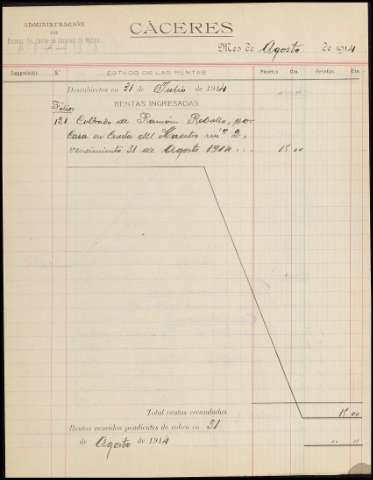 ADMINISTRACIÓN
CÁCERES
Mes de Agosto de 1914
N.º ESTADO DE LAS RENTAS Pesetas Cts. Pesetas Cts.
Descubiertos en 31 de Julio de 1914
RENTAS INGRESADAS
Folios
121 Cobrado de Ramón Rebollo, por
casa en Cuesta del Maestro nº 2,
vencimiento 31 de Agosto 1914 15 00
Total rentas recaudadas 15 00
Rentas vencidas pendientes de cobro en 31
de Agosto de 1914